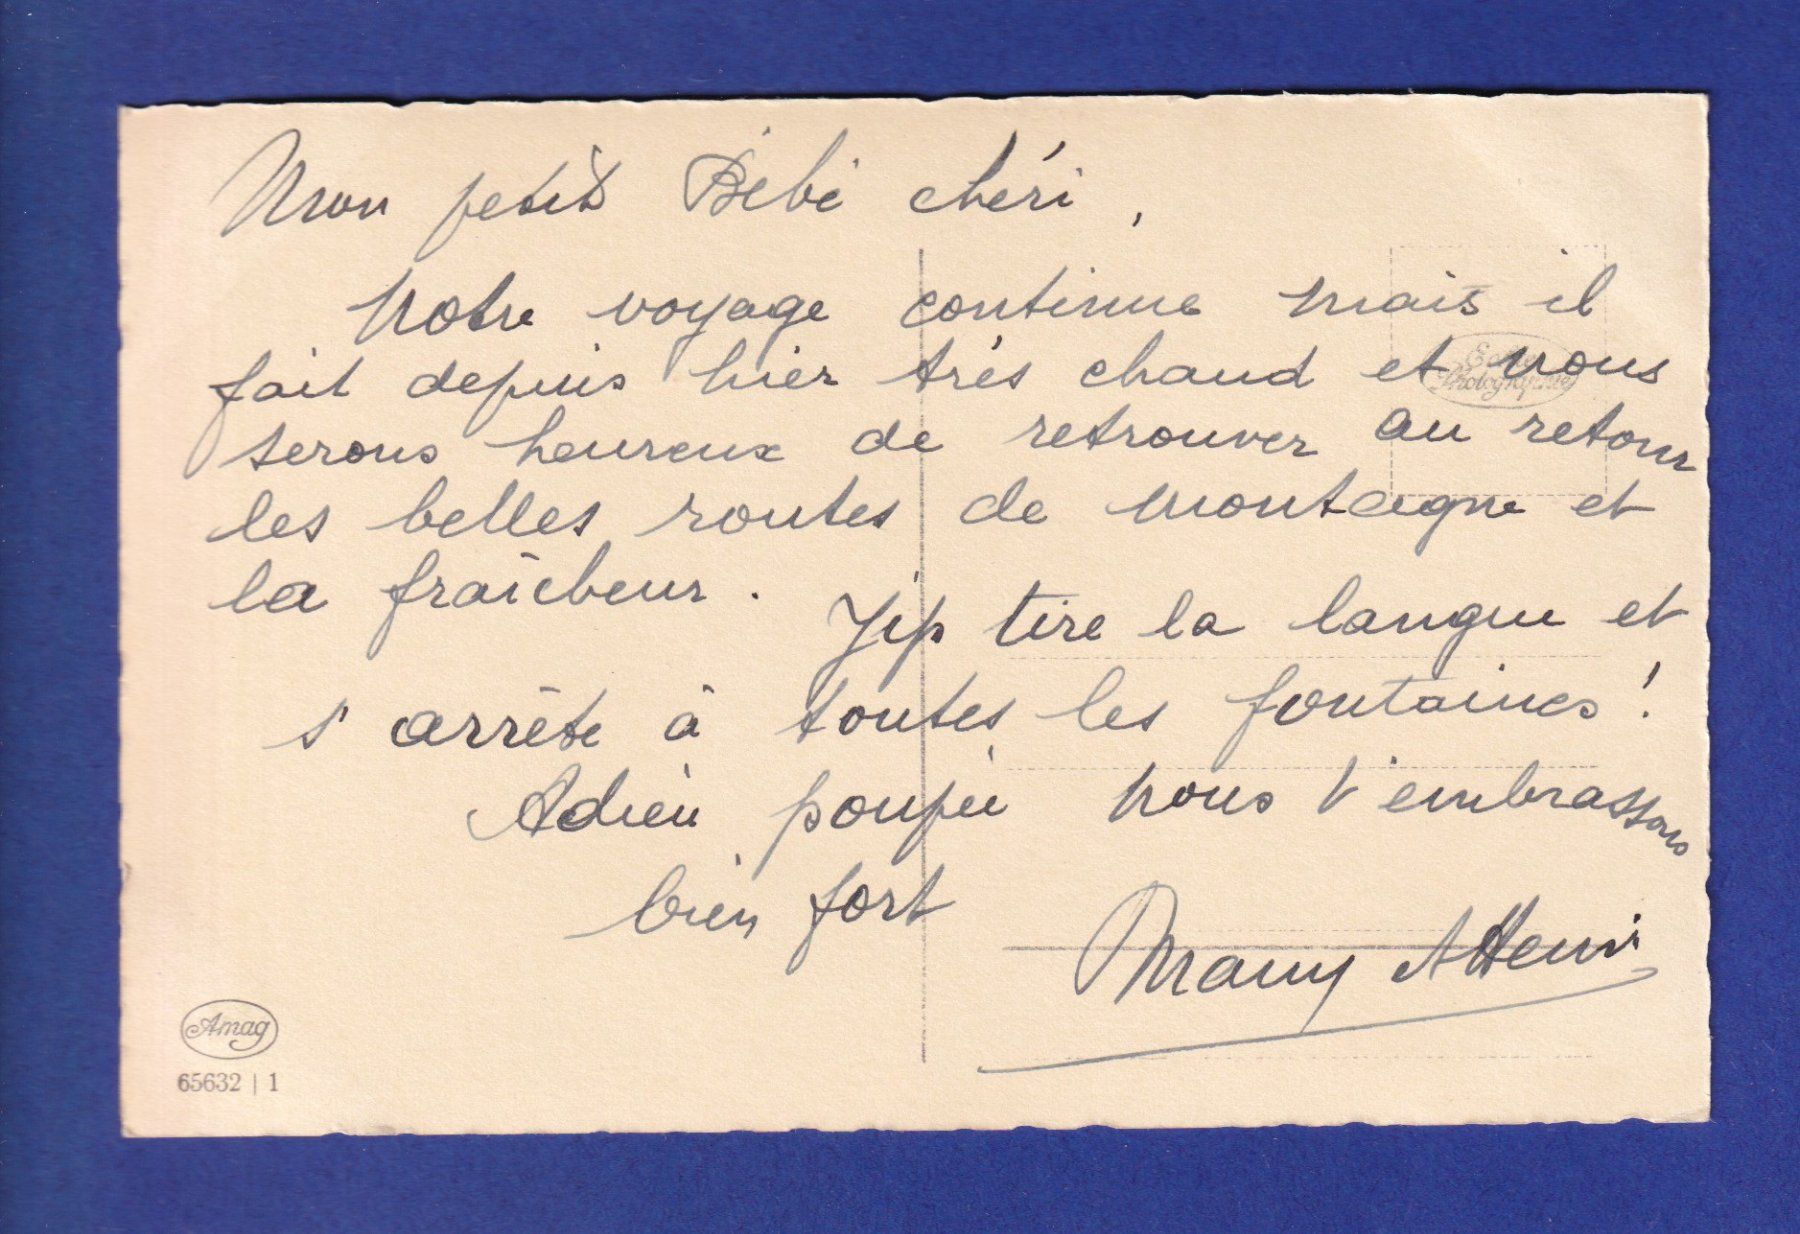 Mon petit Bébé chéri,
Notre voyage continue mais il
fait depuis hier très chaud et nous
serons heureux de retrouver au retour
les belles routes de montagne et
la fraîcheur.
Jip tire la langue et
s'arrête à toutes les fontaines!
Adieu poupée nous t'embrassons
bien fort
Mamy Henri
Echte
Photographie
Amag
65632 | 1